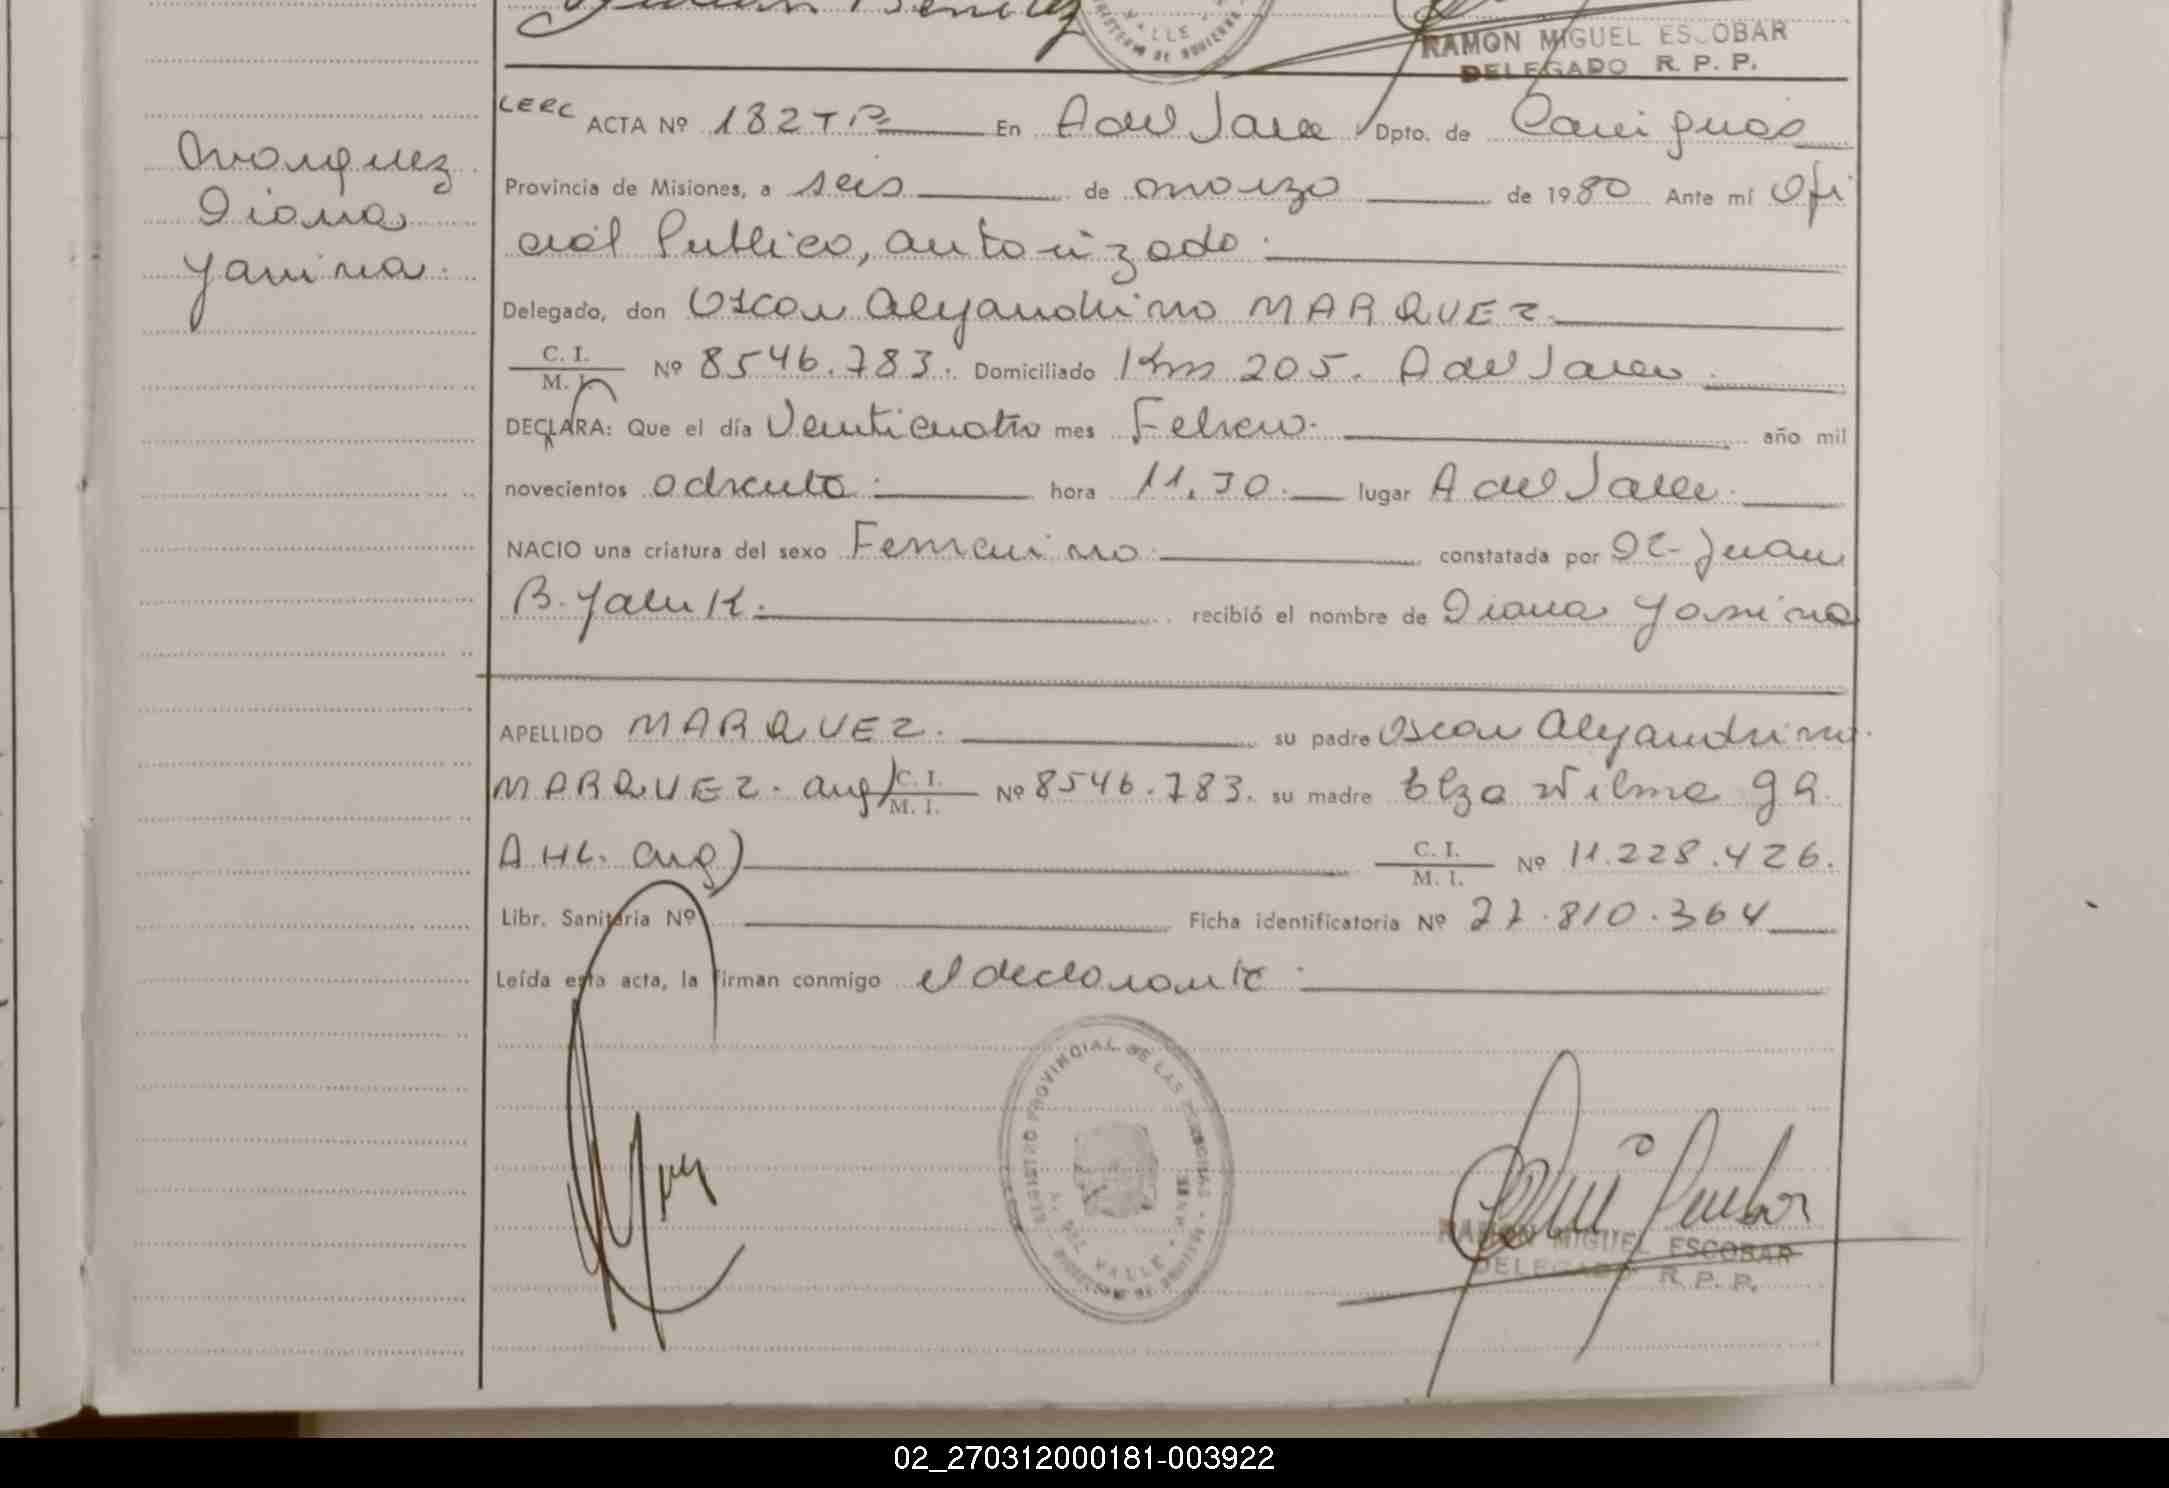 RAMON MIGUEL ESCOBAR
DELEGADO R. P. P.
ACTA Nº 182 T En A del Valle Dpto. de Cainguas
Provincia de Misiones, a seis de marzo de 1980 Ante mí Ofi
cial Publico, autorizado.
Marquez
Diana
Yanina.
Delegado, don Oscar Alejandrino MARQUEZ
C. I.
M. I. Nº 8546.783. Domiciliado Km 205. A del Valle.
DECLARA: Que el día Veinticuatro mes Febrero. año mil
novecientos ochenta. hora 11,30. lugar A del Valle.
NACIO una criatura del sexo Femenino. constatada por Dr. Juan
B. recibió el nombre de Diana Yanina
APELLIDO MARQUEZ. su padre Oscar Alejandrino
MARQUEZ. arg) C. I.
M. I. Nº 8546.783. su madre Elza Wilma
AHL. arg) C. I.
M. I. Nº 11.228.426.
Libr. Sanitaria Nº Ficha identificatoria Nº 27.810.364
Leída esta acta, la firman conmigo el declarante.
REGISTRO PROVINCIAL DE LAS PERSONAS
A. DEL VALLE
RAMON MIGUEL ESCOBAR
DELEGADO R. P. P.
02_270312000181-003922